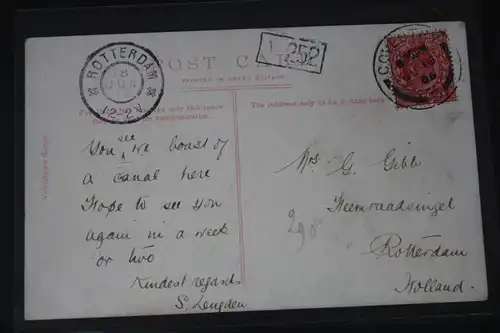 ROTTERDAM
18
JUN
12-2N
POST CARD
PRINTED IN GREAT BRITAIN
L 252
The Address only to be
You see we boast of
a canal here
Hope to see you
again in a week
or two
Kindest regards
S. Longden
Mrs. G. Gibb
Heemraadsingel
Rotterdam
Holland.
298